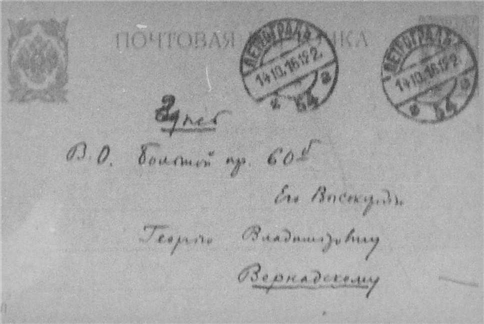 ПОЧТОВАЯ
ПЕТРОГРАДЪ
14.10.16
54
ПЕТРОГРАДЪ
14.10.16
54
Здѣсь
В.О. Большой пр. 60б
Его
Георгію Владиміровичу
Вернадскому